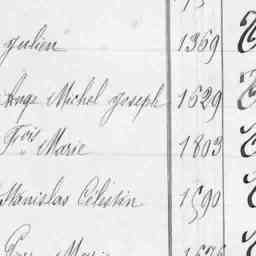 Julien 1369
Ange Michel Joseph 1629
Fçois Marie 1803
Stanislas Célestin 1590
Marie